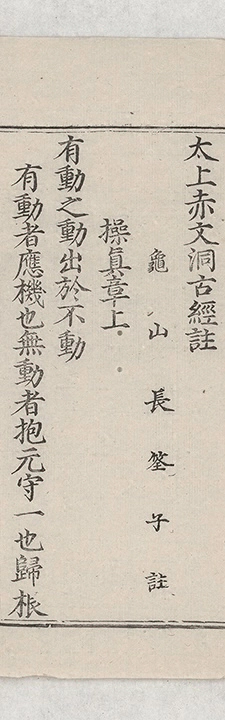 太上赤文洞古經註
龜山長筌子註
操眞章上
有動之動出於不動
有動者應機也無動者抱元守一也歸根